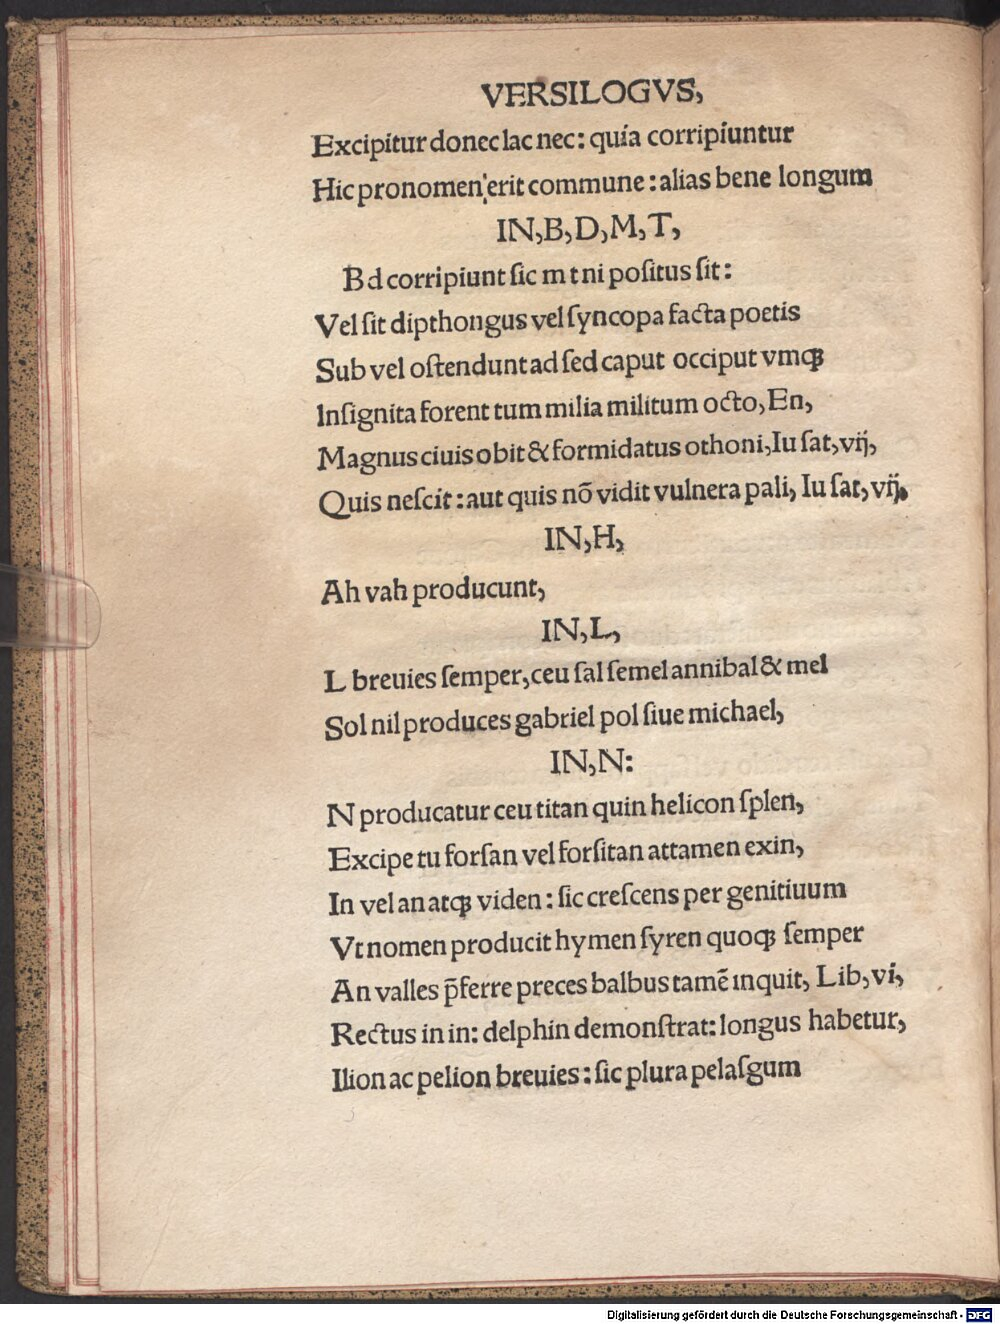 VERSILOGVS,
Excipitur donec lac nec: quía corripíuntur
Hic pronomen erit commune: alias bene longum
IN,B,D,M,T,
B d corripiunt ſic m t ni poſitus ſit:
Vel ſit dipthongus vel ſyncopa facta poetis
Sub vel oſtendunt ad ſed caput occiput vmqꝫ
Inſignita forent tum milia militum octo, En,
Magnus ciuis obit & formidatus othoni, Iu ſat, vij,
Quis neſcit: aut quis nõ vidit vulnera pali, Iu ſat, vij.
IN,H,
Ah vah producunt,
IN,L,
L breuies ſemper, ceu ſal ſemel annibal & mel
Sol nil produces gabriel pol ſiue michael,
IN,N:
N producatur ceu titan quin helicon ſplen,
Excipe tu forſan vel forſitan attamen exin,
In vel an atqꝫ viden: ſic creſcens per genitiuum
Vt nomen producit hymen ſyren quoqꝫ ſemper
An valles p̃ferre preces balbus tamẽ inquit, Lib, vi,
Rectus in in: delphin demonſtrat: longus habetur,
Ilion ac pelion breuies: ſic plura pelaſgum
Digitalisierung gefördert durch die Deutsche Forschungsgemeinschaft - DFG